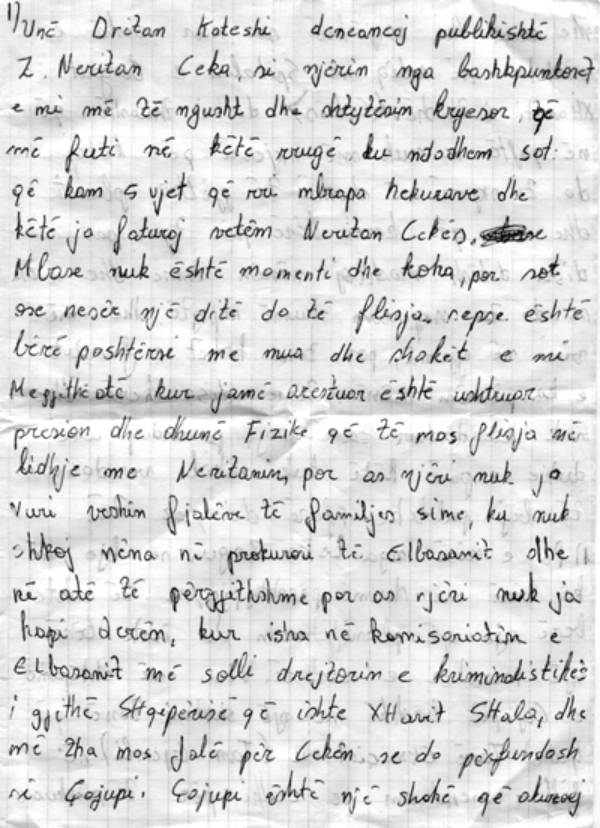 1) Unë Dritan Koteshi denoancoj publikishtë
Z. Neritan Ceka si njërin nga bashkpuntorët
e mi më të ngusht dhe shtytësin kryesor, që
më futi në këtë rrugë ku ndodhem sot:
që kam 5 vjet që rri mbrapa hekurave dhe
këtë ja faturoj vetëm Neritan Cekës,
Mbase nuk është momenti dhe koha, por sot
ose nesër një ditë do të flisja. sepse është
bërë poshtërsi me mua dhe shokët e mi
Megjithëatë kur jamë arestuar është ushtruar
presion dhe dhunë Fizike që të mos flisja në
lidhje me Neritanin, por as njëri nuk ja
vuri veshin fjalëve të familjes sime, ku nuk
shkoj nëna në prokurori të Elbasanit dhe
në atë të përgjithshme por as njëri nuk ja
hapi derën, kur isha në komisariatin e
Elbasanit më solli drejtorin e kriminalistikës
i gjithë Shqipërisë që ishte XHavit SHala, dhe
më tha mos folë për Cekën se do përfundosh
si Çojupi. Çojupi është një shokë që akuzoj